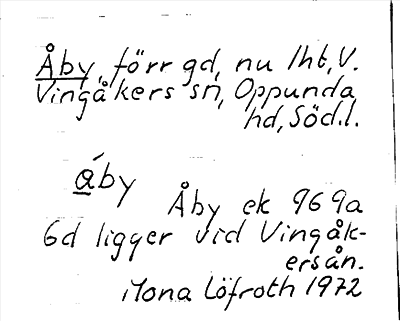 Åby, förr gd, nu lht, V.
Vingåkers sn, Oppunda
hd, Södl.
á̲by
Åby ek 969a
Gd ligger vid Vingåk-
ersån.
Mona Löfroth 1972